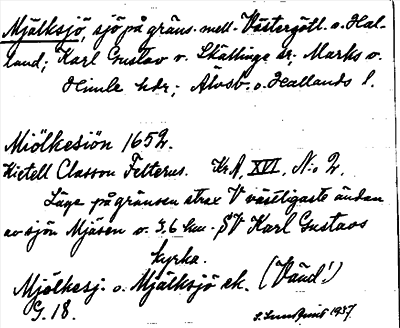 Mjälksjö, sjö på gräns. mell. Västergötl. o. Hal-
land; Karl Gustav o. Skällinge sr; Marks o.
Himle hdr; Älvsb. o. Hallands l.
Miölkesiön 1652.
Kietell Classon Felterus. Kr.A, XVI, N:o 2.
Läge på gränsen strax V västligaste ändan
av sjön Mjäsen o. 3,6 km. SV Karl Gustavs
kyrka.
Mjölkesj. o. Mjälksjö ek. (Vänd!)
G. 18.
S. Lundquist 1937.